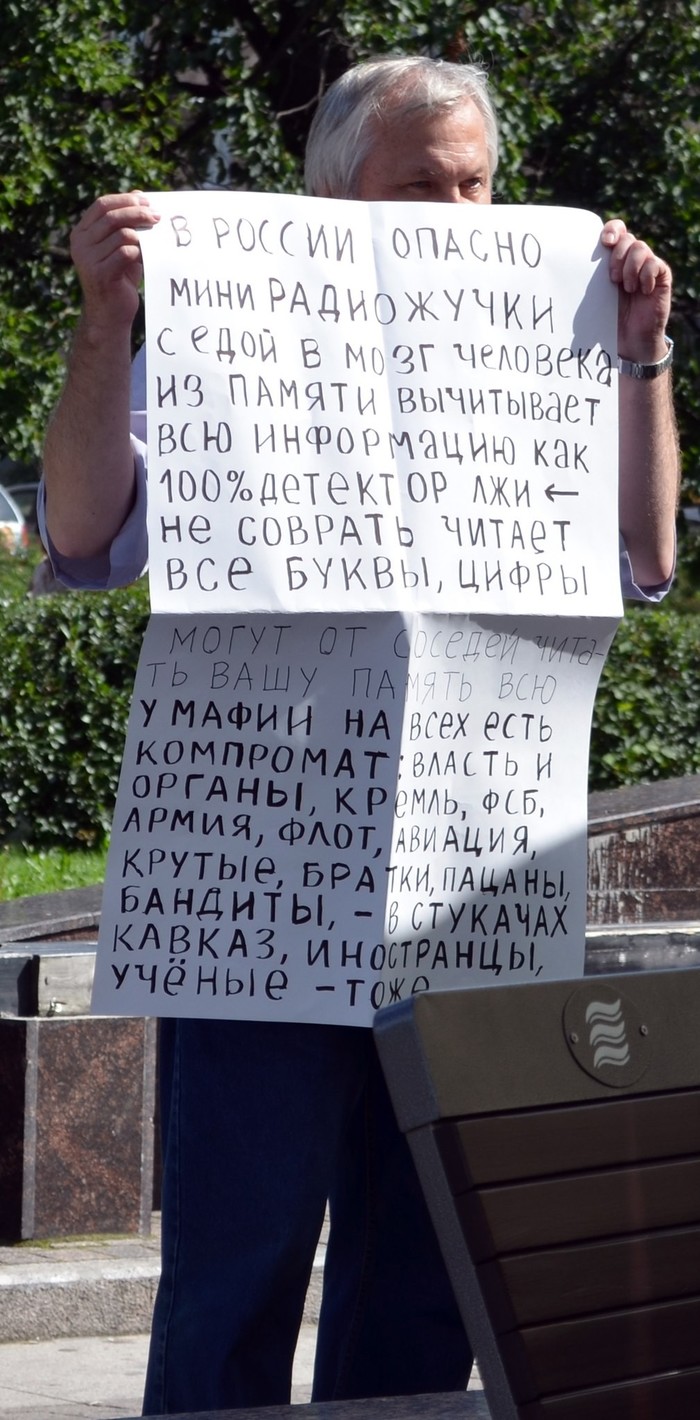 В РОССИИ ОПАСНО
МИНИ РАДИОЖУЧКИ
С ЕДОЙ В МОЗГ ЧЕЛОВЕКА
ИЗ ПАМЯТИ ВЫЧИТЫВАЕТ
ВСЮ ИНФОРМАЦИЮ КАК
100% ДЕТЕКТОР ЛЖИ ←
НЕ СОВРАТЬ ЧИТАЕТ
ВСЕ БУКВЫ, ЦИФРЫ
МОГУТ ОТ СОСЕДЕЙ ЧИТА-
ТЬ ВАШУ ПАМЯТЬ ВСЮ
У МАФИИ НА ВСЕХ ЕСТЬ
КОМПРОМАТ: ВЛАСТЬ И
ОРГАНЫ, КРЕМЛЬ, ФСБ,
АРМИЯ, ФЛОТ, АВИАЦИЯ,
КРУТЫЕ, БРАТКИ, ПАЦАНЫ,
БАНДИТЫ, – В СТУКАЧАХ
КАВКАЗ, ИНОСТРАНЦЫ,
УЧЁНЫЕ – ТОЖЕ